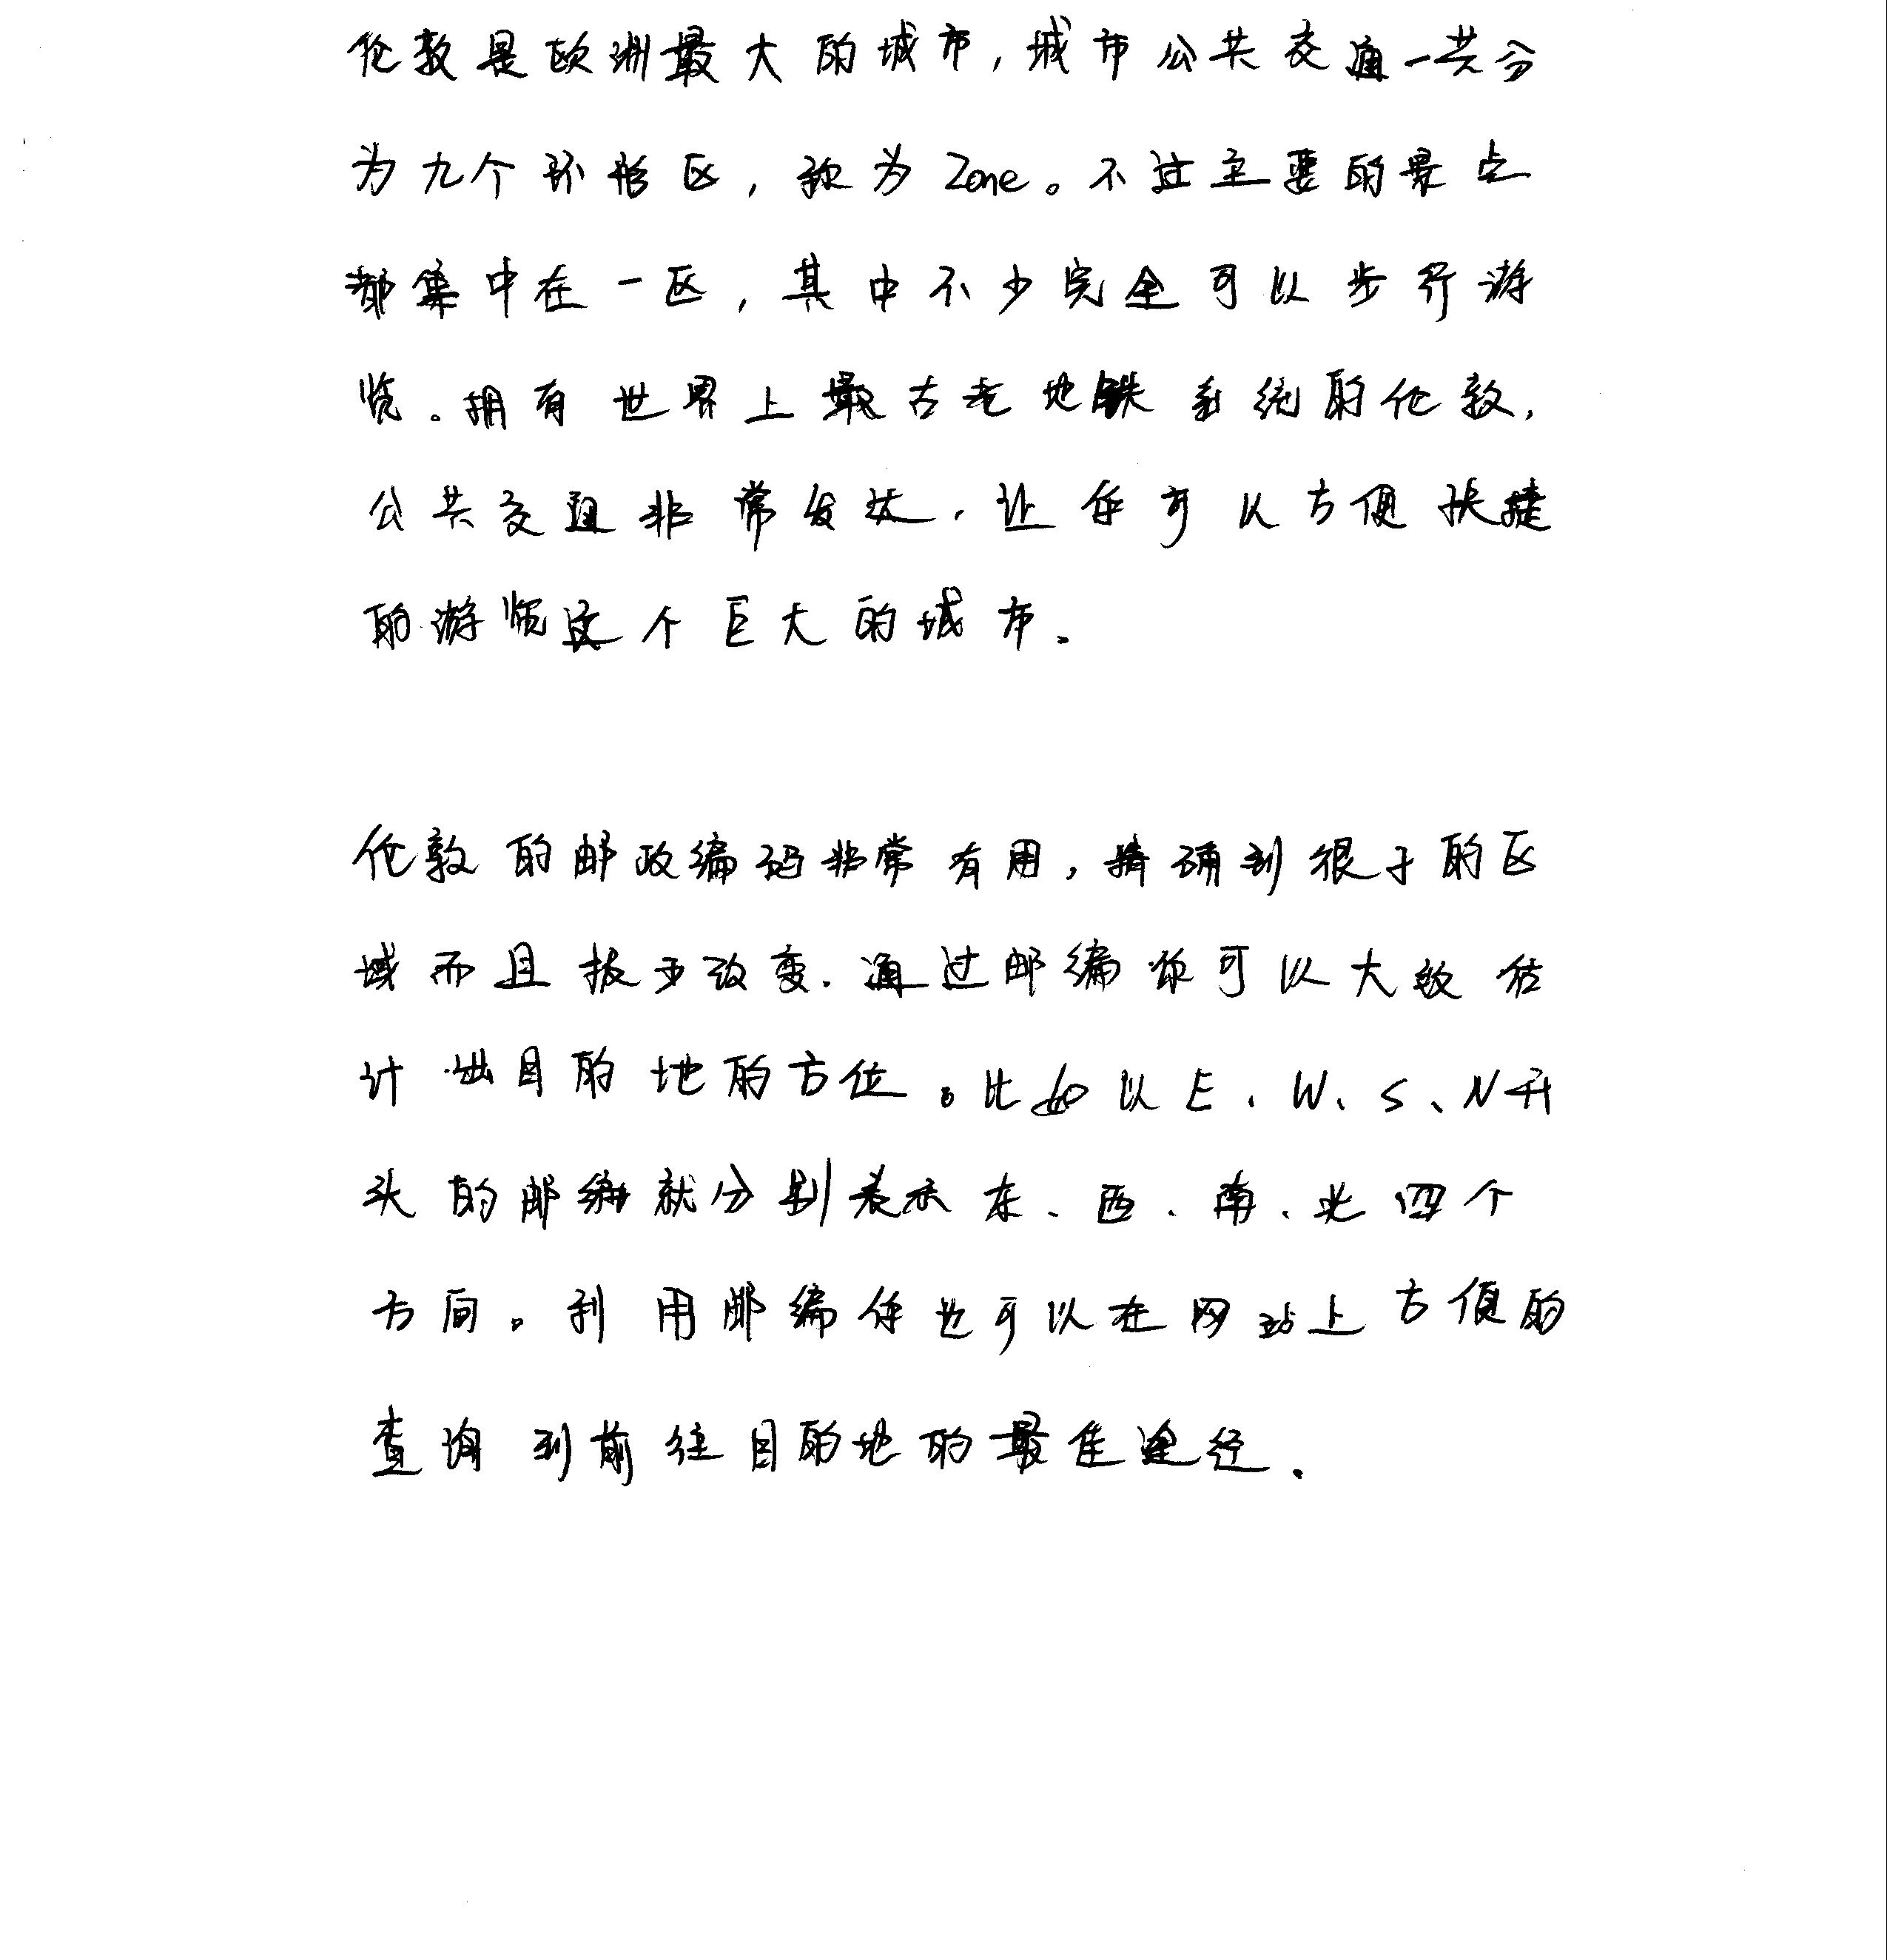 伦敦是欧洲最大的城市，城市公共交通一共分
为九个环形区，称为Zone。不过主要的景点
都集中在一区，其中不少完全可以步行游
览。拥有世界上最古老地铁系统的伦敦，
公共交通非常发达，让你可以方便快捷
的游览这个巨大的城市。
伦敦的邮政编码非常有用，精确到很小的区
域而且极少改变。通过邮编你可以大致估
计出目的地的方位。比如以E、W、S、N开
头的邮编就分别表示东、西、南、北四个
方向。利用邮编你也可以在网站上方便的
查询到前往目的地的最佳途径。